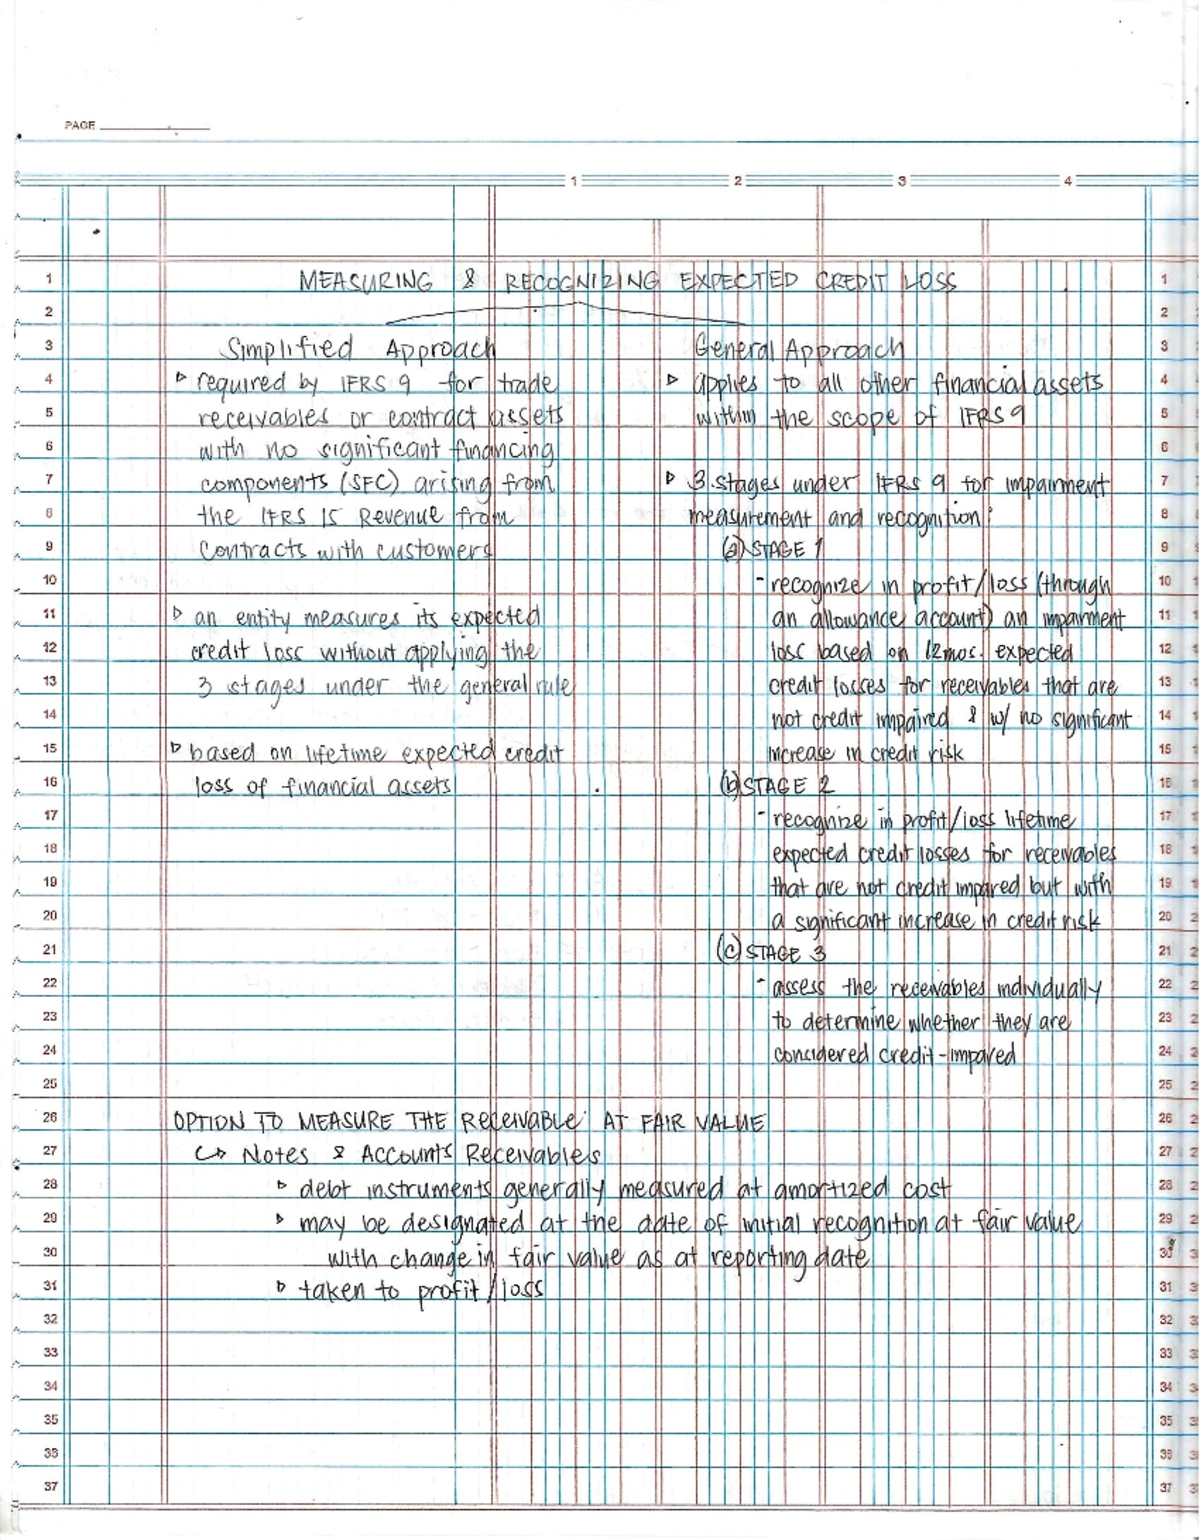 PAGE
1 2 3 4
MEASURING & RECOGNIZING EXPECTED CREDIT LOSS
Simplified Approach
▹ required by IFRS 9 for trade
receivables or contract assets
with no significant financing
components (SFC) arising from
the IFRS 15 Revenue from
Contracts with customers
▹ an entity measures its expected
credit loss without applying the
3 stages under the general rule
▹ based on lifetime expected credit
loss of financial assets
General Approach
▹ applies to all other financial assets
within the scope of IFRS 9
▹ 3 stages under IFRS 9 for impairment
measurement and recognition:
(a) STAGE 1
- recognize in profit/loss (through
an allowance account) an impairment
loss based on 12mos. expected
credit losses for receivables that are
not credit impaired & w/ no significant
increase in credit risk
(b) STAGE 2
- recognize in profit/loss lifetime
expected credit losses for receivables
that are not credit impared but with
a significant increase in credit risk
(c) STAGE 3
- assess the receivables individually
to determine whether they are
considered credit-impared
OPTION TO MEASURE THE Receivable AT FAIR VALUE
↪ Notes & Accounts Receivables
▹ debt instruments generally measured at amortized cost
▹ may be designated at the date of initial recognition at fair value
with change in fair value as at reporting date
▹ taken to profit/loss